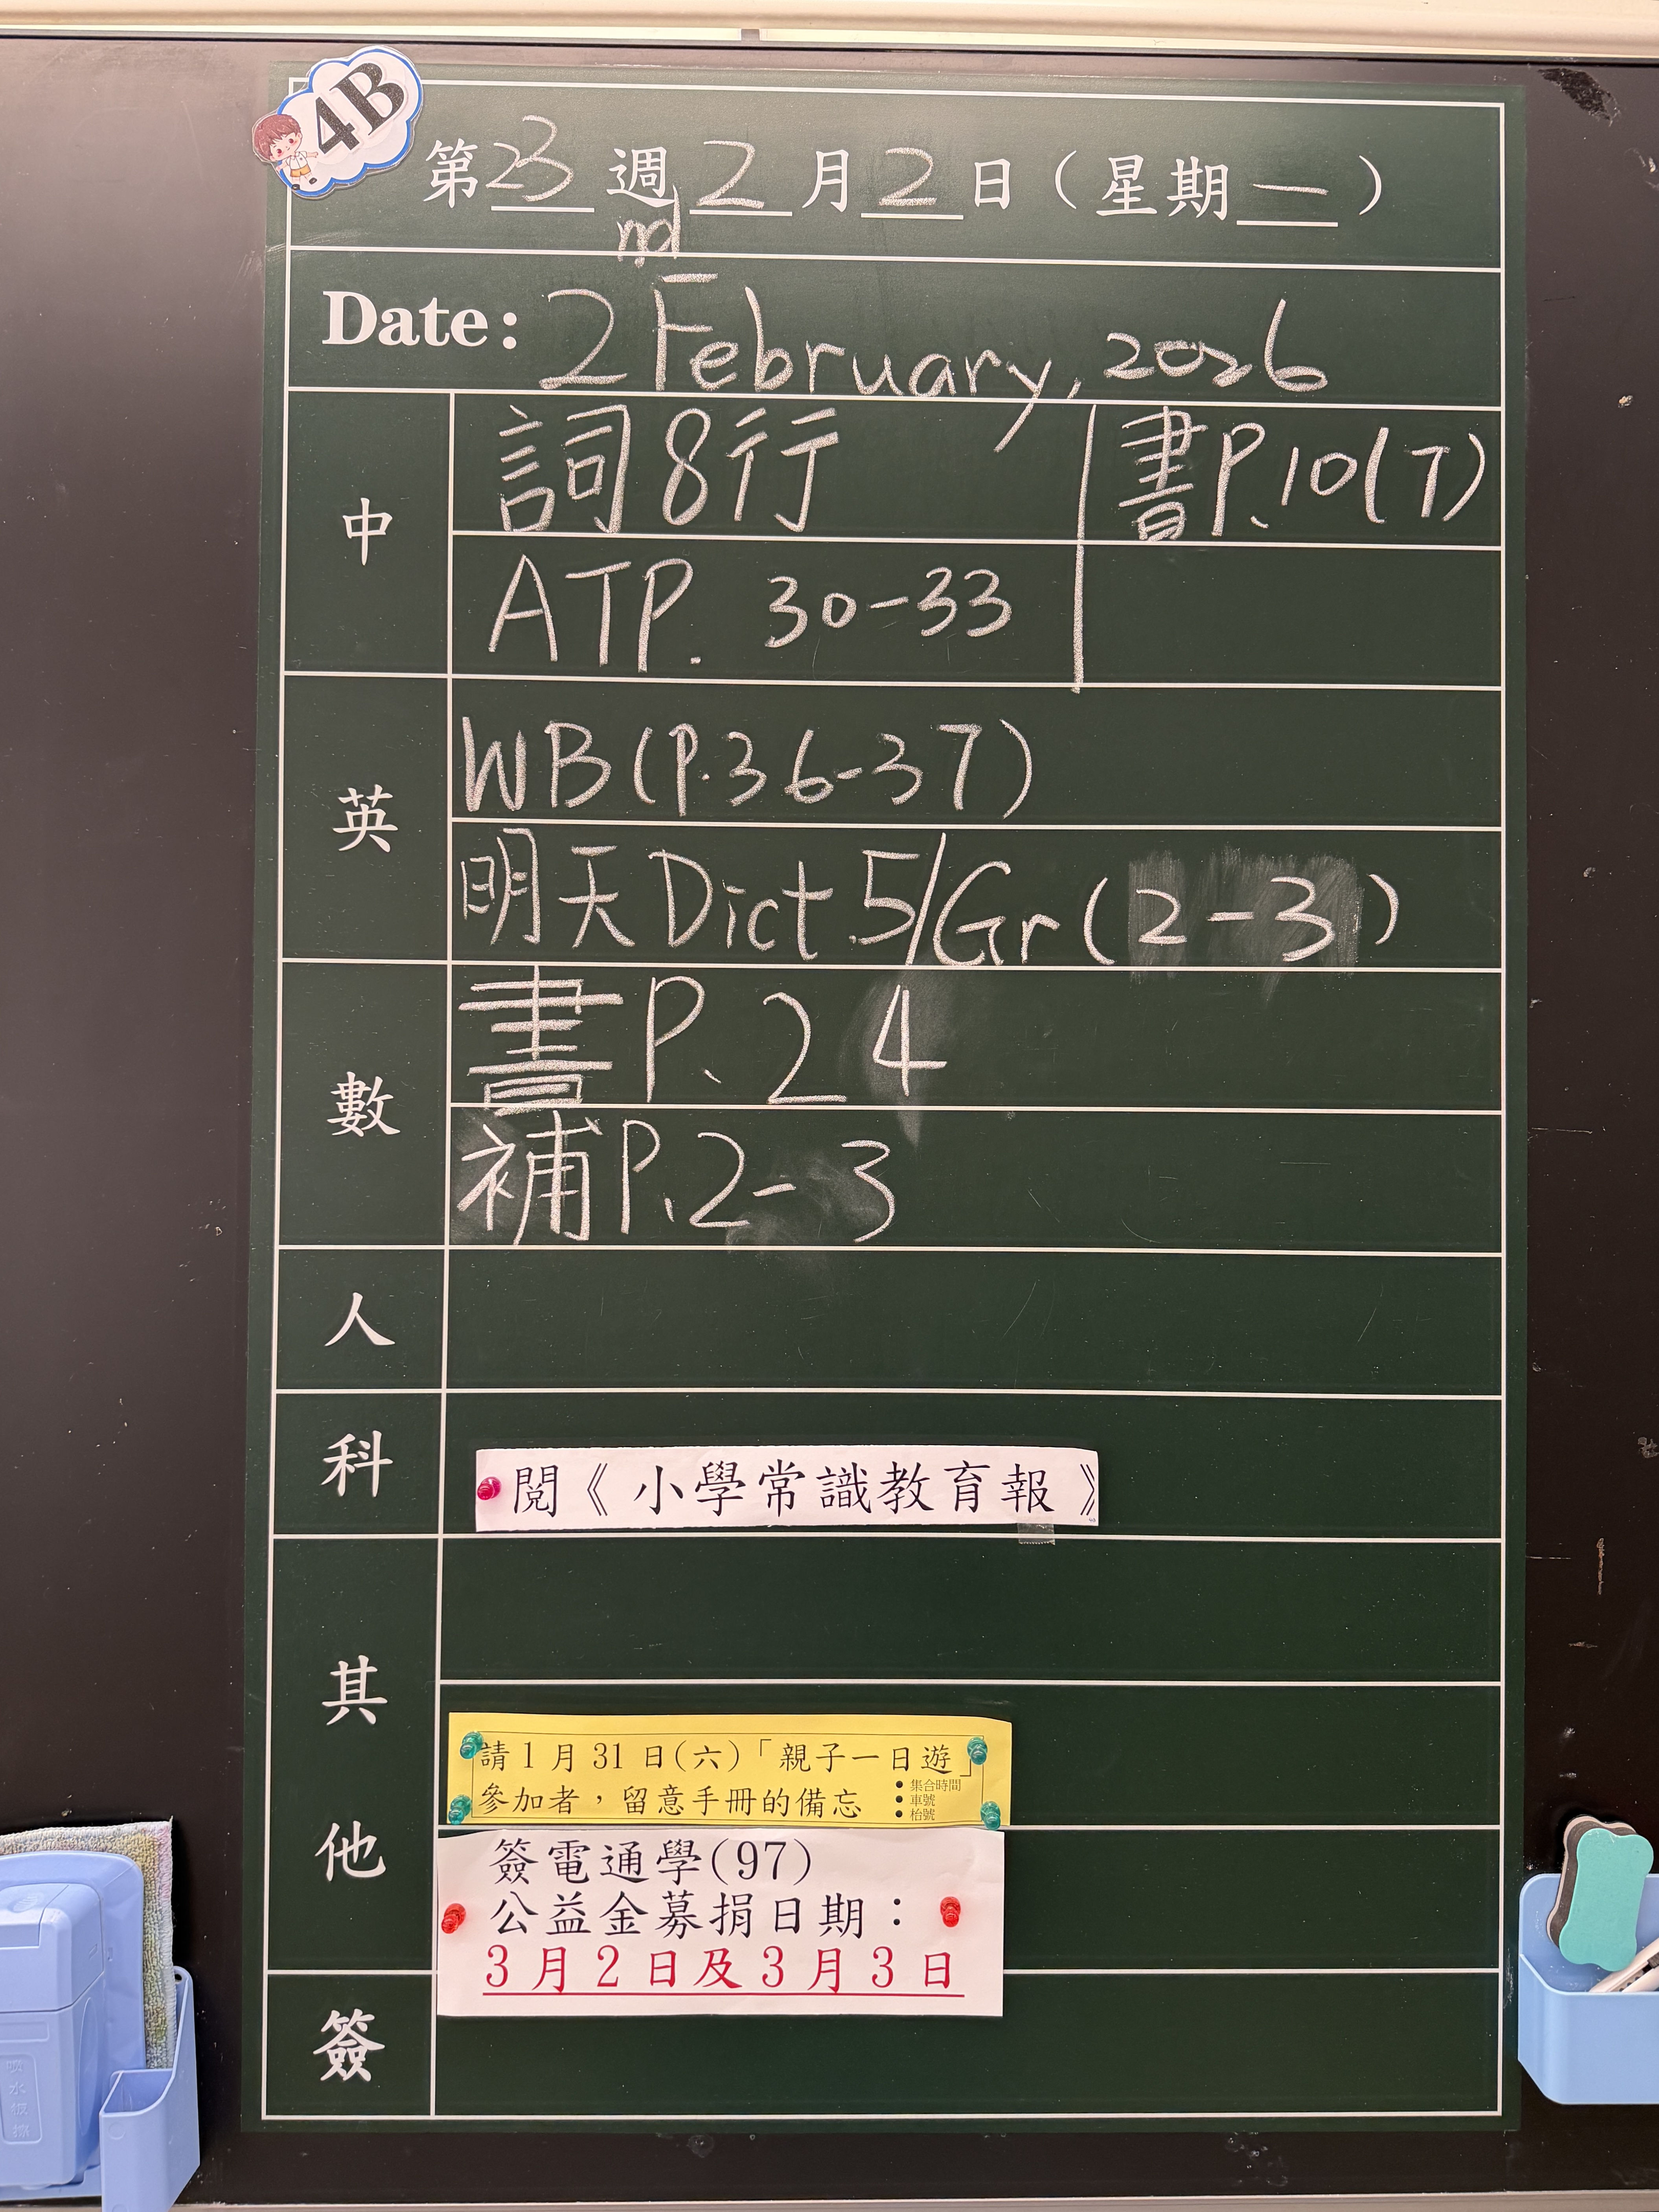 4B
第23週2月2日（星期一）
Date: 2nd February, 2026
中
詞8行
書P.10(7)
ATP. 30-33
英
WB(P.36-37)
明天Dict.5/Gr(2-3)
數
書P.24
補P.2-3
人
科
閱《小學常識教育報》
其他
請1月31日(六)「親子一日遊」
參加者，留意手冊的備忘
• 集合時間
• 車號
• 枱號
簽電通學(97)
公益金募捐日期：
3月2日及3月3日
簽